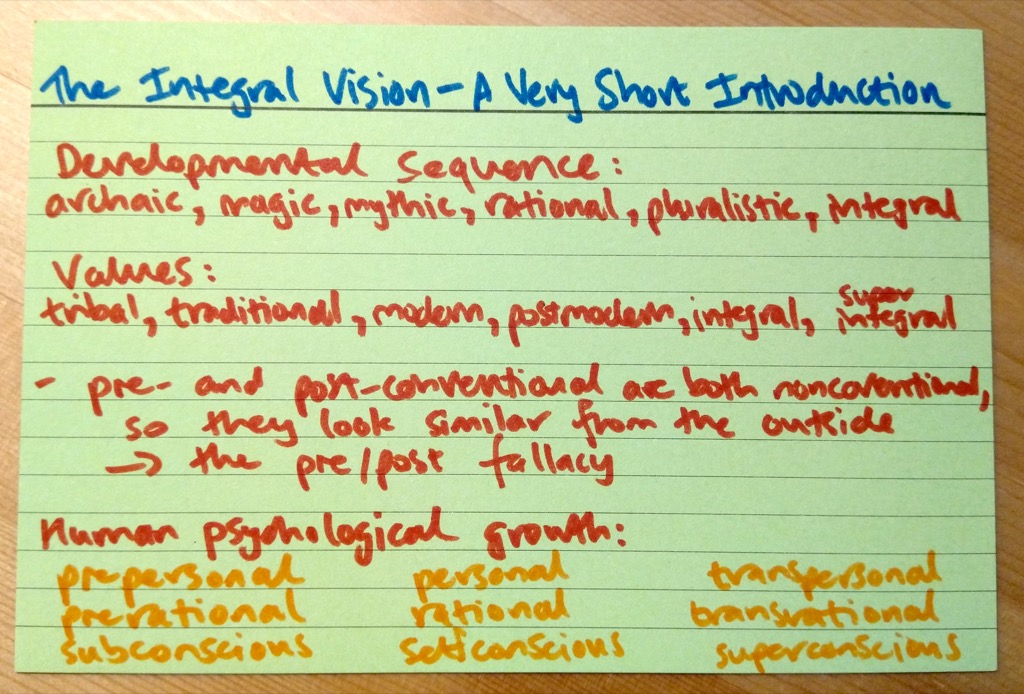 The Integral Vision - A Very Short Introduction
Developmental Sequence:
archaic, magic, mythic, rational, pluralistic, integral
Values:
tribal, traditional, modern, postmodern, integral, super integral
- pre- and post-conventional are both nonconventional,
so they look similar from the outside
→ the pre/post fallacy
Human psychological growth:
prepersonal personal transpersonal
prerational rational transrational
subconscious selfconscious superconscious